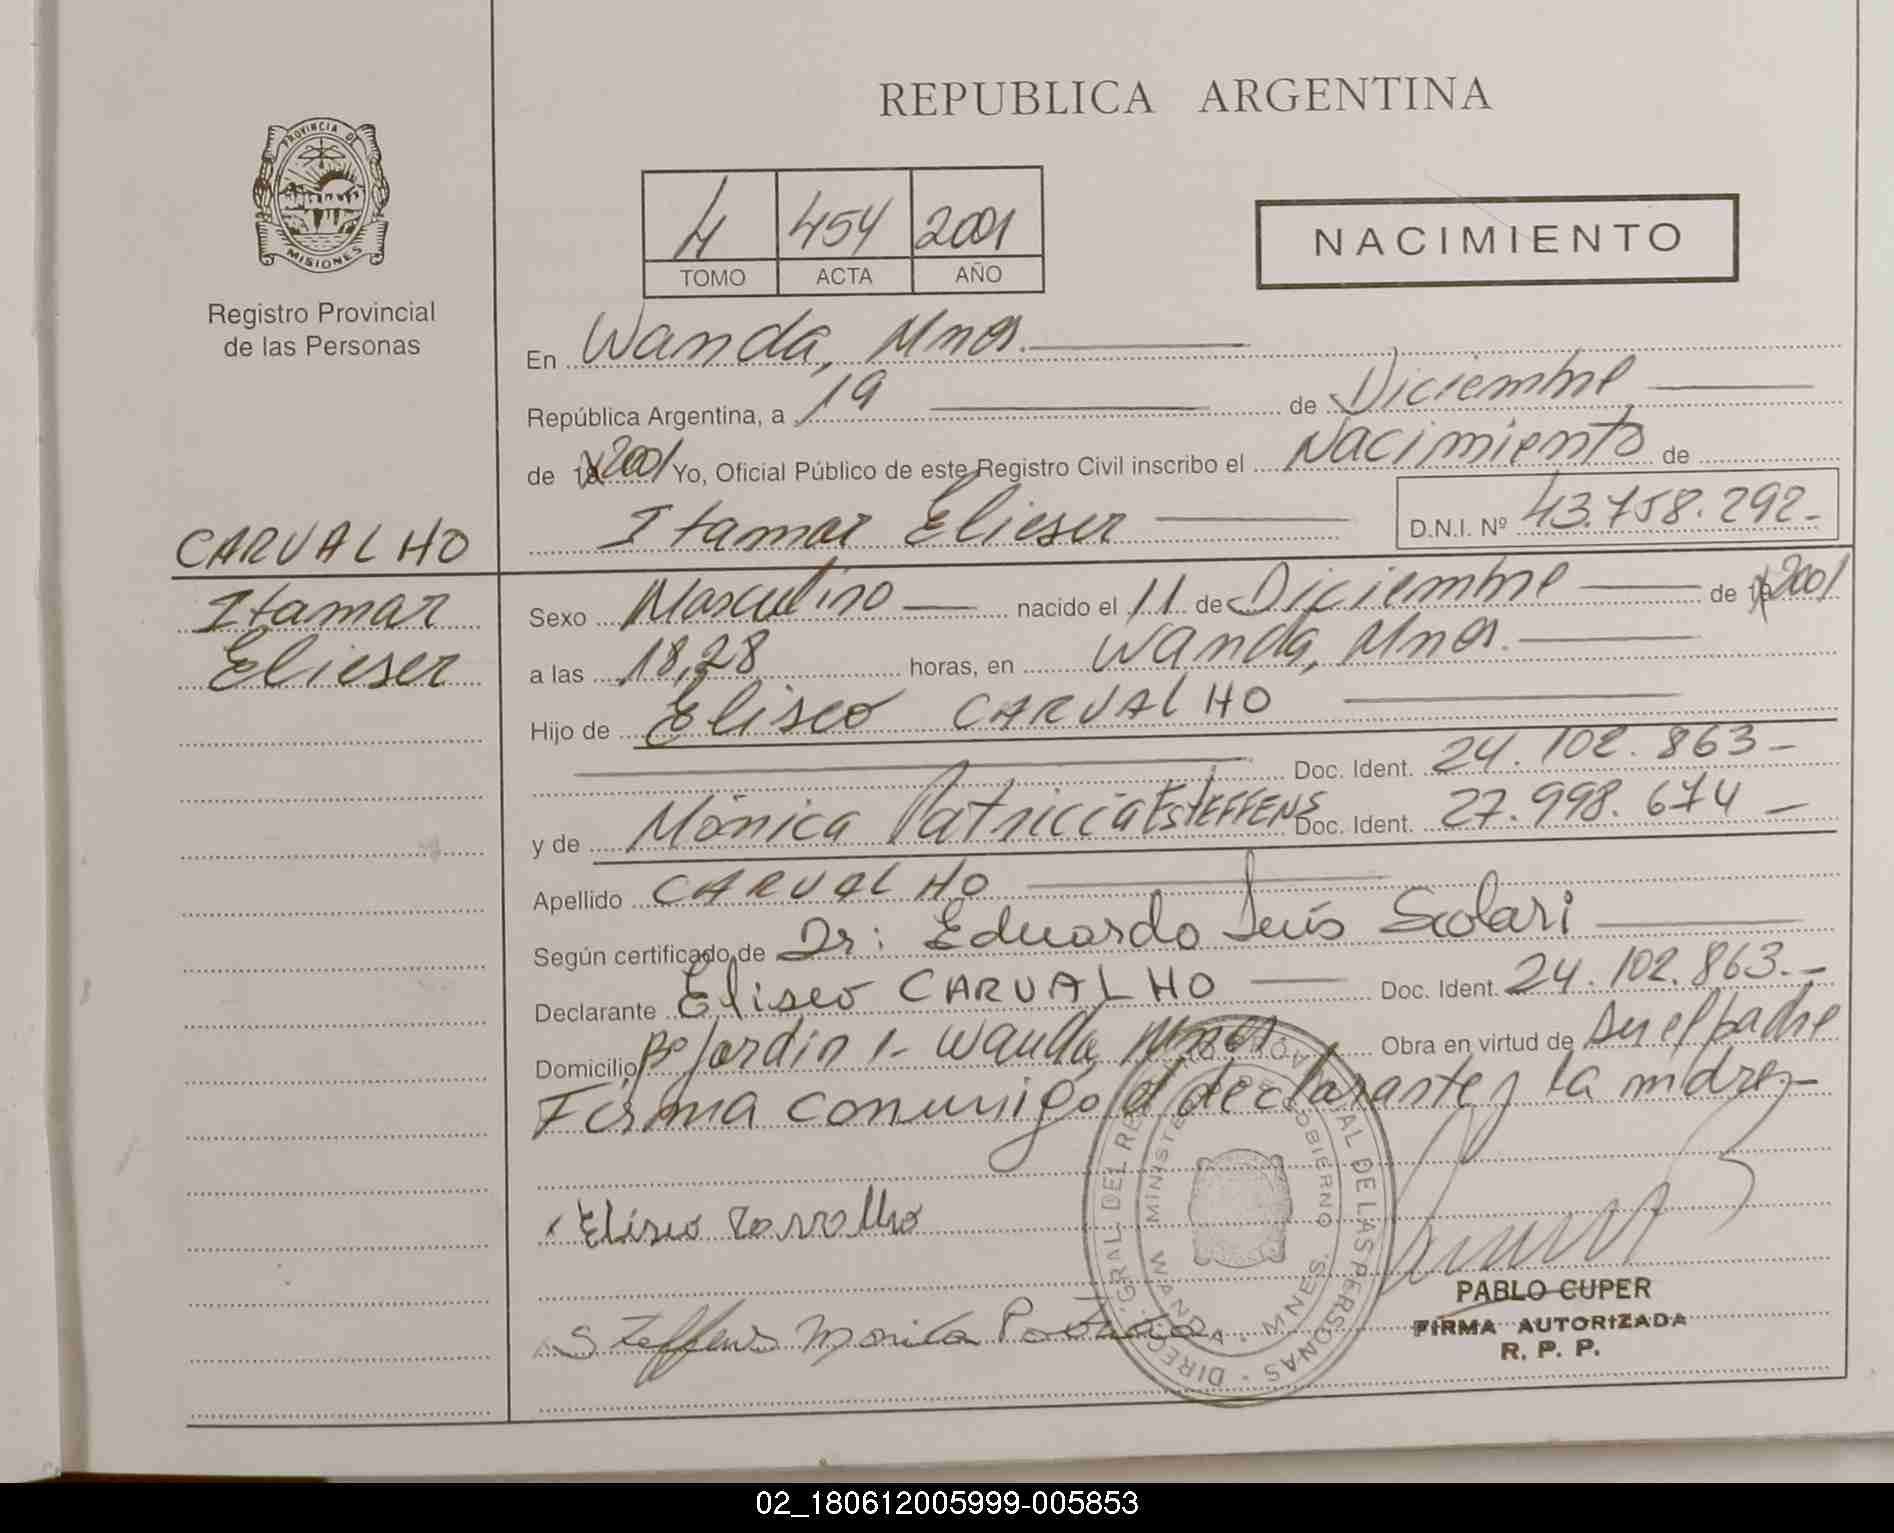 REPUBLICA ARGENTINA
PROVINCIA DE
MISIONES
Registro Provincial
de las Personas
4 454 2001
TOMO ACTA AÑO
NACIMIENTO
En Wanda, Mnes.
República Argentina, a 19 de Diciembre
de 19 2001 Yo, Oficial Público de este Registro Civil inscribo el Nacimiento de
Itamar Elieser D.N.I. Nº 43.758.292-
CARVALHO
Itamar
Elieser
Sexo Masculino nacido el 11 de Diciembre de 19 2001
a las 18,28 horas, en Wanda, Mnes.
Hijo de Eliseo CARVALHO
Doc. Ident. 24.102.863-
y de Mónica Patricia EsTEFFENS Doc. Ident. 27.998.674-
Apellido CARVALHO
Según certificado de Dr: Eduardo Luis Scolari
Declarante Eliseo CARVALHO Doc. Ident. 24.102.863.-
Domicilio Bº Jardin 1- Wanda, Mnes. Obra en virtud de Ser el padre
Firma conmigo el declarante y la madre.-
Eliseo Carvalho
Steffens Monica Patricia
DIREC. GRAL. DEL REG. PROVINCIAL DE LAS PERSONAS
MINISTERIO DE GOBIERNO
WANDA - MNES.
PABLO CUPER
FIRMA AUTORIZADA
R. P. P.
02_180612005999-005853